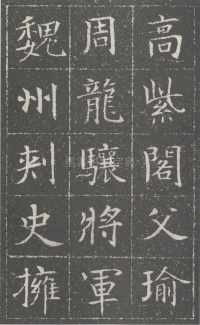 高紫閣父瑜
周龍驤將軍
魏州刾史擁